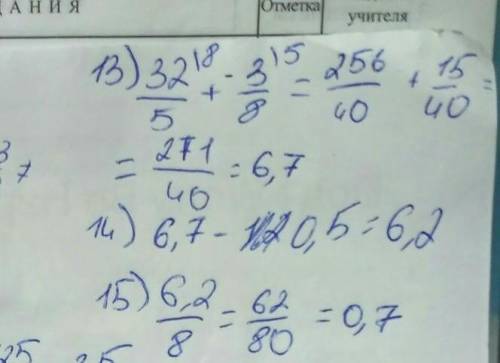 ДАНИЯ Отметка учителя
13) 32/5 \8 + 3/8 \5 = 256/40 + 15/40 =
= 271/40 = 6,7
14) 6,7 - 0,5 = 6,2
15) 6,2/8 = 62/80 = 0,7